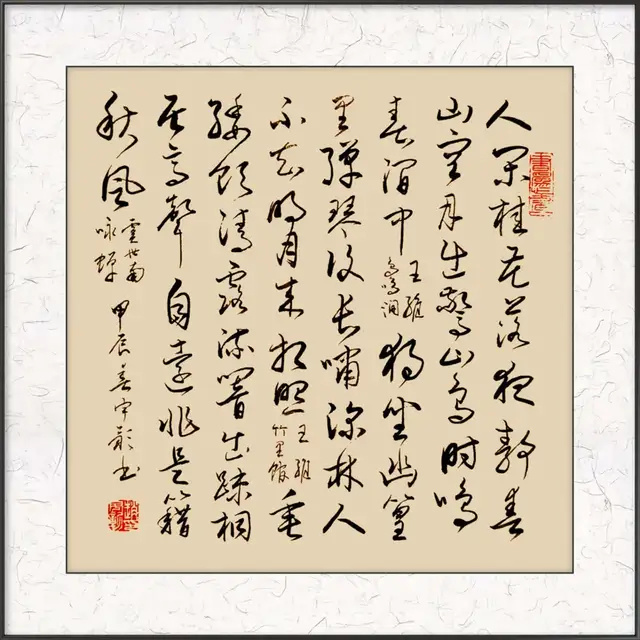 人闲桂花落夜静春
山空月出驚山鸟时鸣
春涧中 王維 鸟鸣涧 獨坐幽篁
里彈琴復长嘯深林人
不知明月来相照 王維 竹里馆 垂
緌饮清露流響出疎桐
居高聲自遠非是籍
秋风 虞世南 咏蝉 甲辰 书